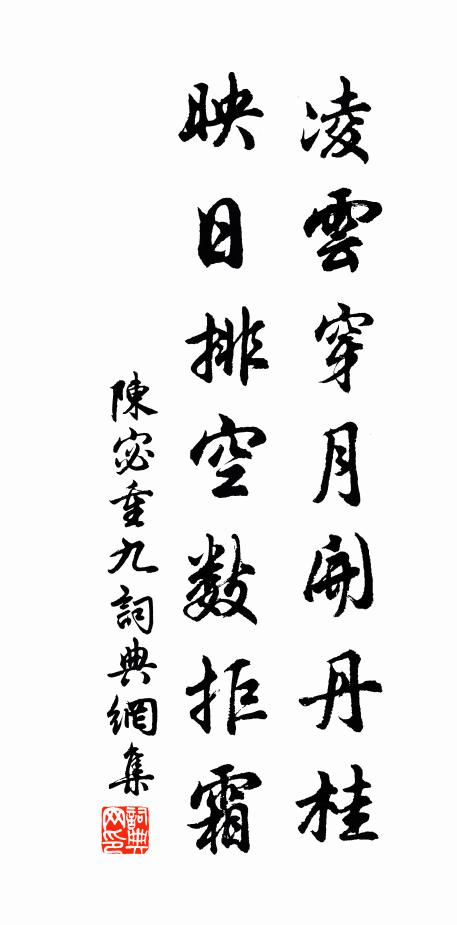 凌雲穿月開丹桂
映日排空數拒霜
陳宓重九詞典網集
詞典網印